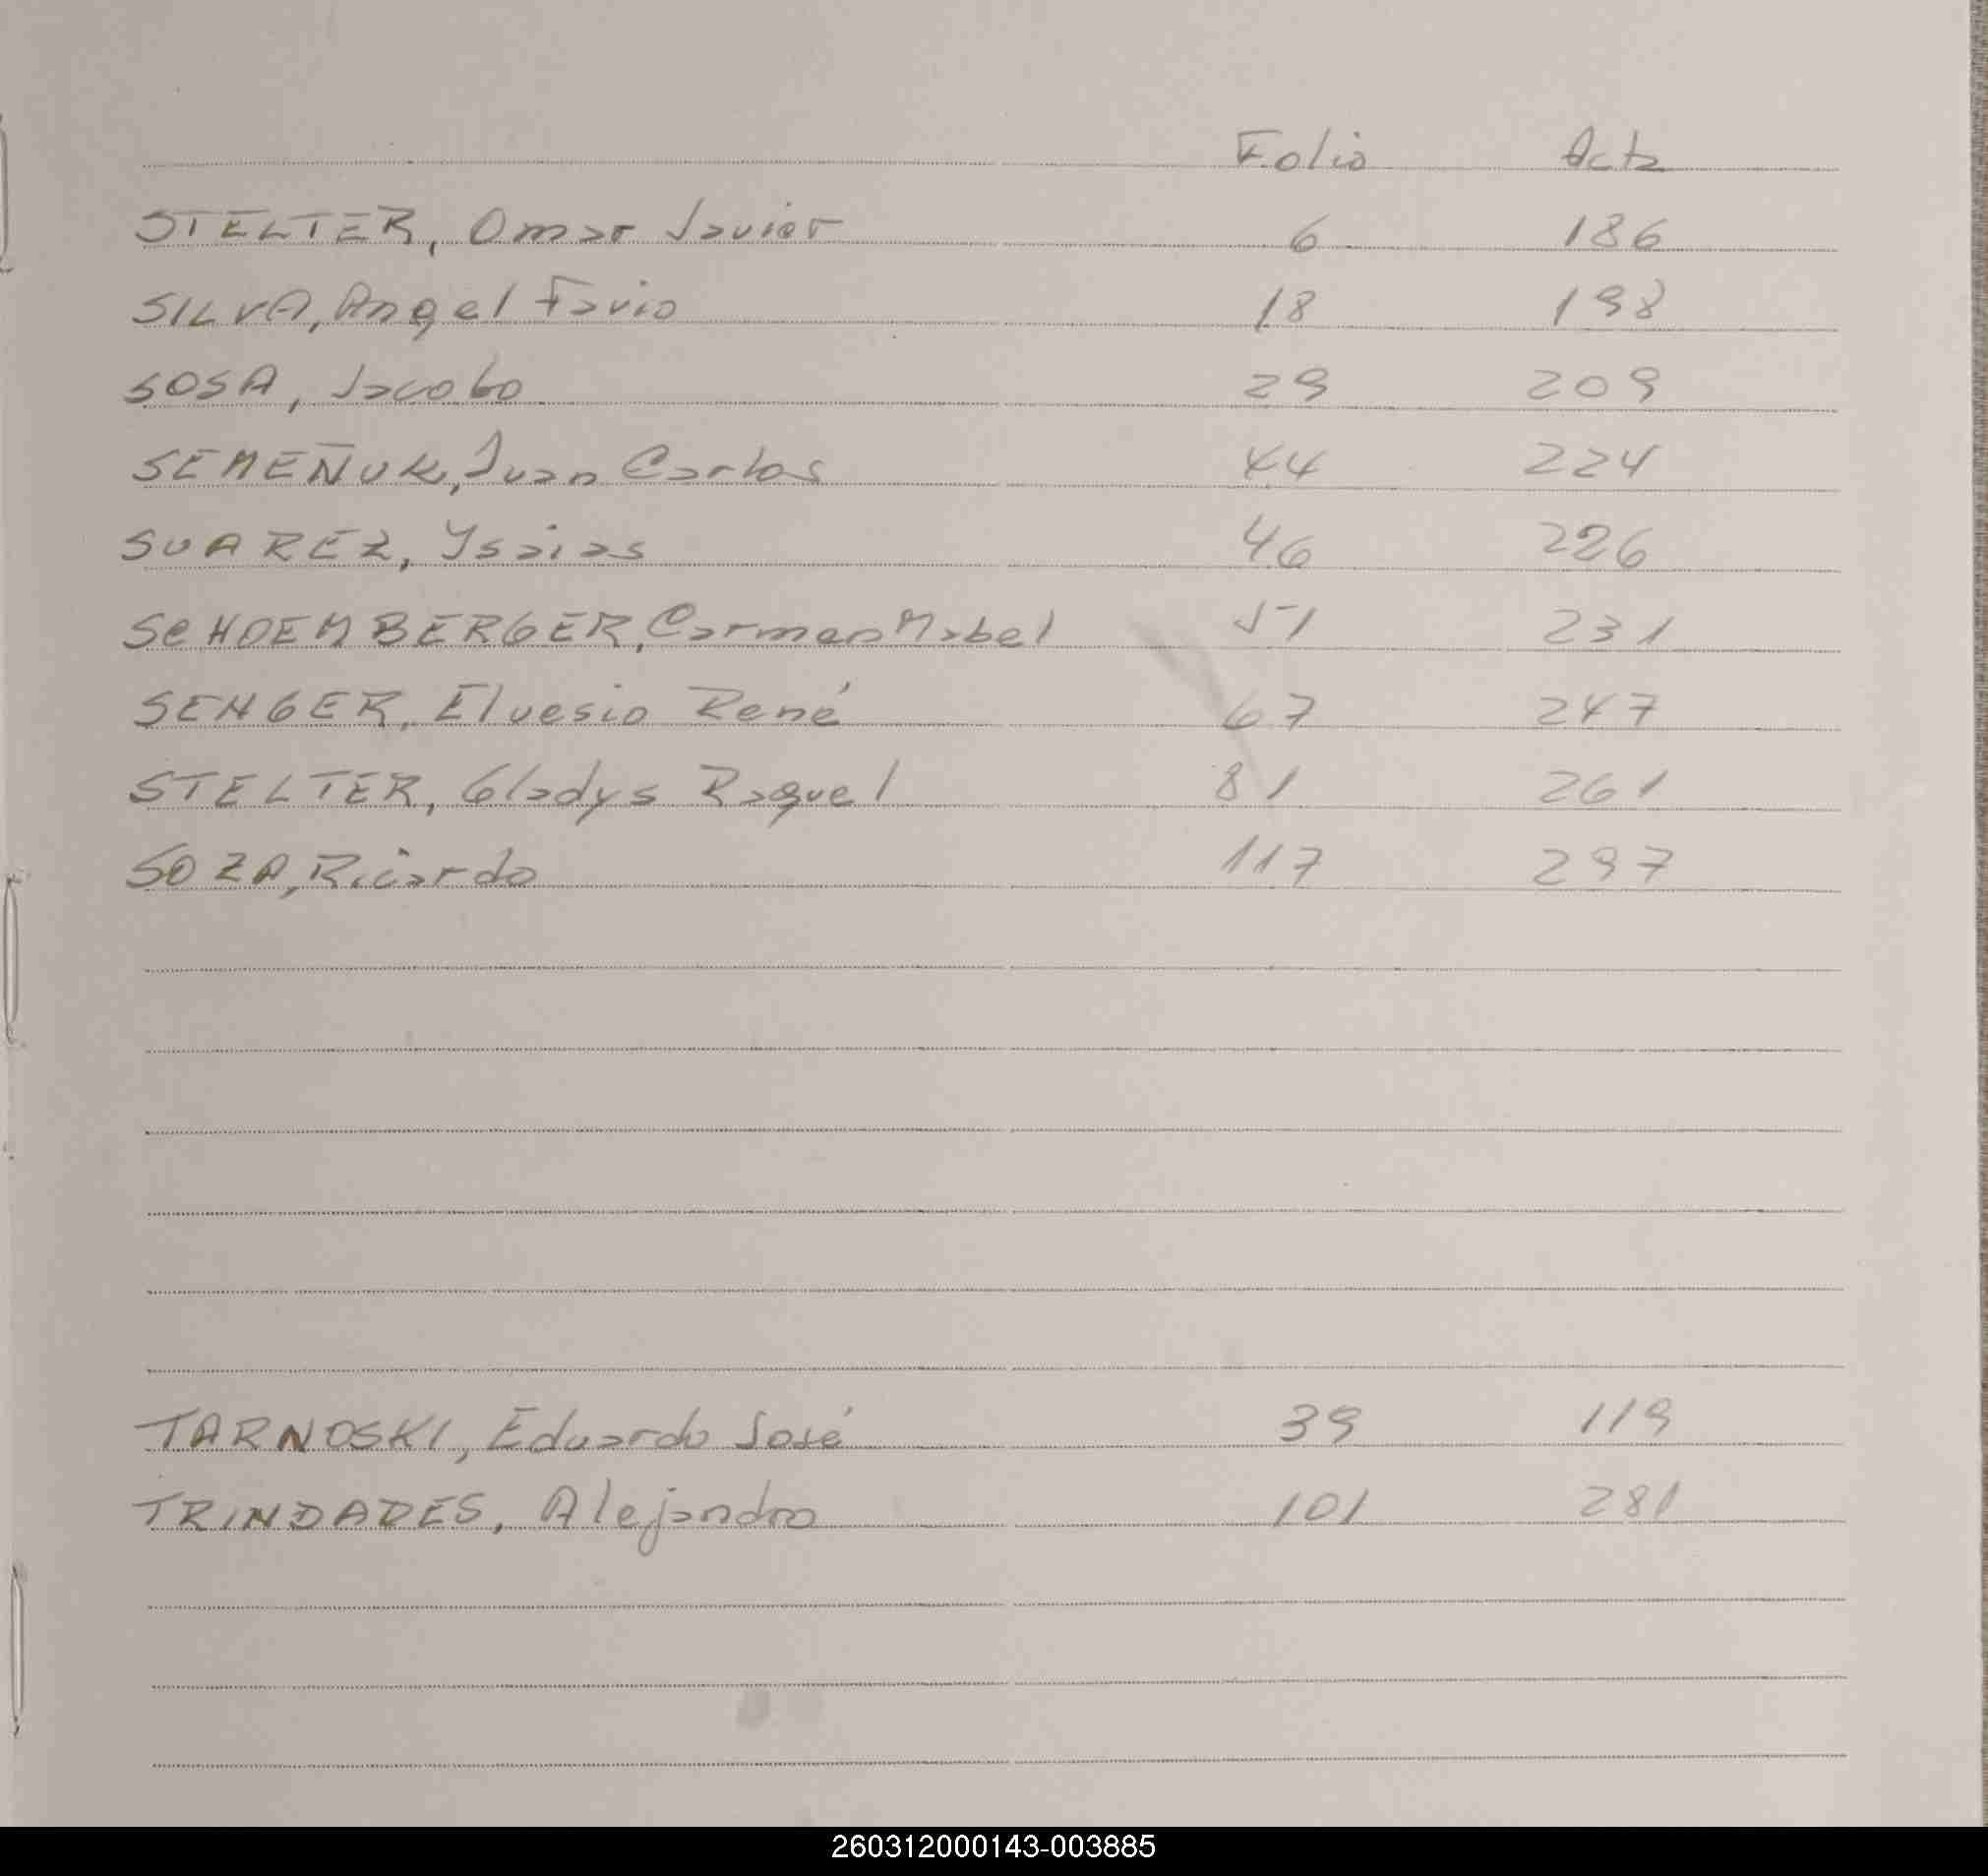 Folio Acta
STELTER, Omar Javier 6 186
SILVA, Angel Favio 18 198
SOSA, Jacobo 29 209
SEMEÑUK, Juan Carlos 44 224
SUAREZ, Ysaias 46 226
SCHOEMBERGER, Carmen Mabel 51 231
SENGER, Elvesio René 67 247
STELTER, Gladys Raquel 81 261
SOZA, Ricardo 117 297
TARNOSKI, Eduardo José 39 119
TRINDADES, Alejandro 101 281
260312000143-003885